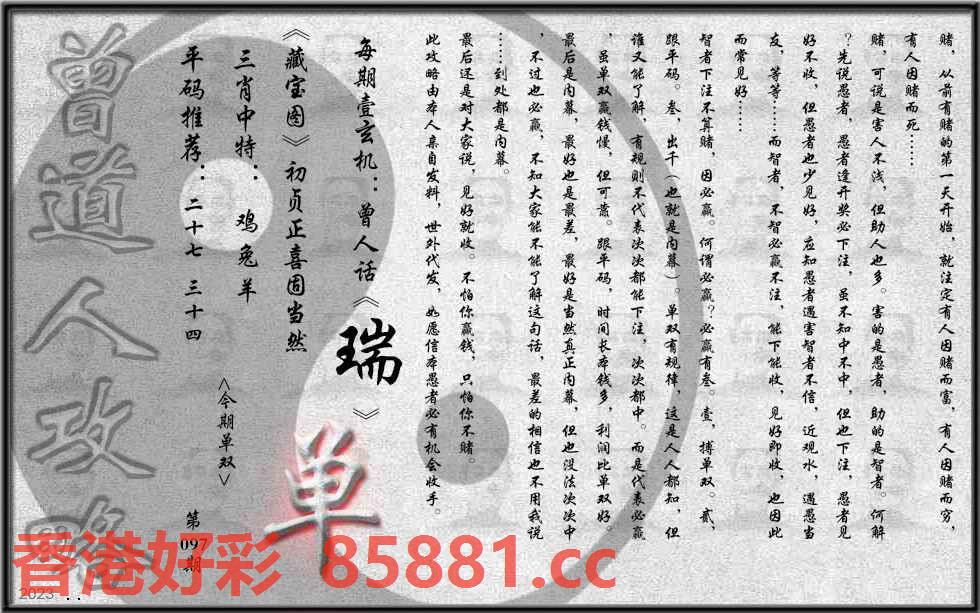 赌，从前有赌的第一天开始，就注定有人因赌而富，有人因赌而穷，
有人因赌而死……
赌，可说是害人不浅，但助人也多。害的是愚者，助的是智者。何解
？先说愚者，愚者逢开奖必下注，虽不知中不中，但也下注，愚者见
好不收，但愚者也少见好，应知愚者遇害智者不信，近观水，遇愚当
友，等等……而智者，不智必赢不注，能下能收，见好即收，也因此
而常见好……
智者下注不算赌，因必赢。何谓必赢？必赢有叁。壹，搏单双。贰，
跟平码。叁，出千（也就是内幕）。单双有规律，这是人人都知，但
谁又能了解，有规则不代表次次都能下注，次次都中。而是代表必赢
，虽单双赢钱慢，但可靠。跟平码，时间长本钱多，利润比单双好。
最后是内幕，最好也是最差，最好是当然真正内幕，但也没法次次中
，不过也必赢，不知大家能不能了解这句话，最差的相信也不用我说
……到处都是内幕。
最后还是对大家说，见好就收。不怕你赢钱，只怕你不赌。
此攻略由本人亲自发料，世外代发，如愿信本愚者必有机会收手。
每期壹玄机：曾人话《瑞》
《藏宝图》初贞正喜固当然
三肖中特：鸡兔羊
平码推荐：二十七 三十四
<今期单双>
单
第
097
期
曾道人攻略
香港好彩 85881.cc
2023